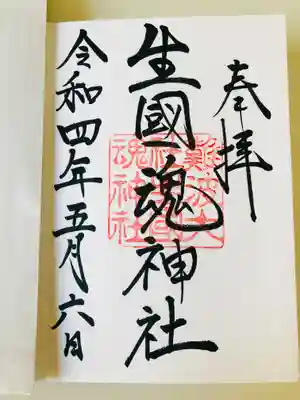 奉拝
生國魂神社
令和四年五月六日